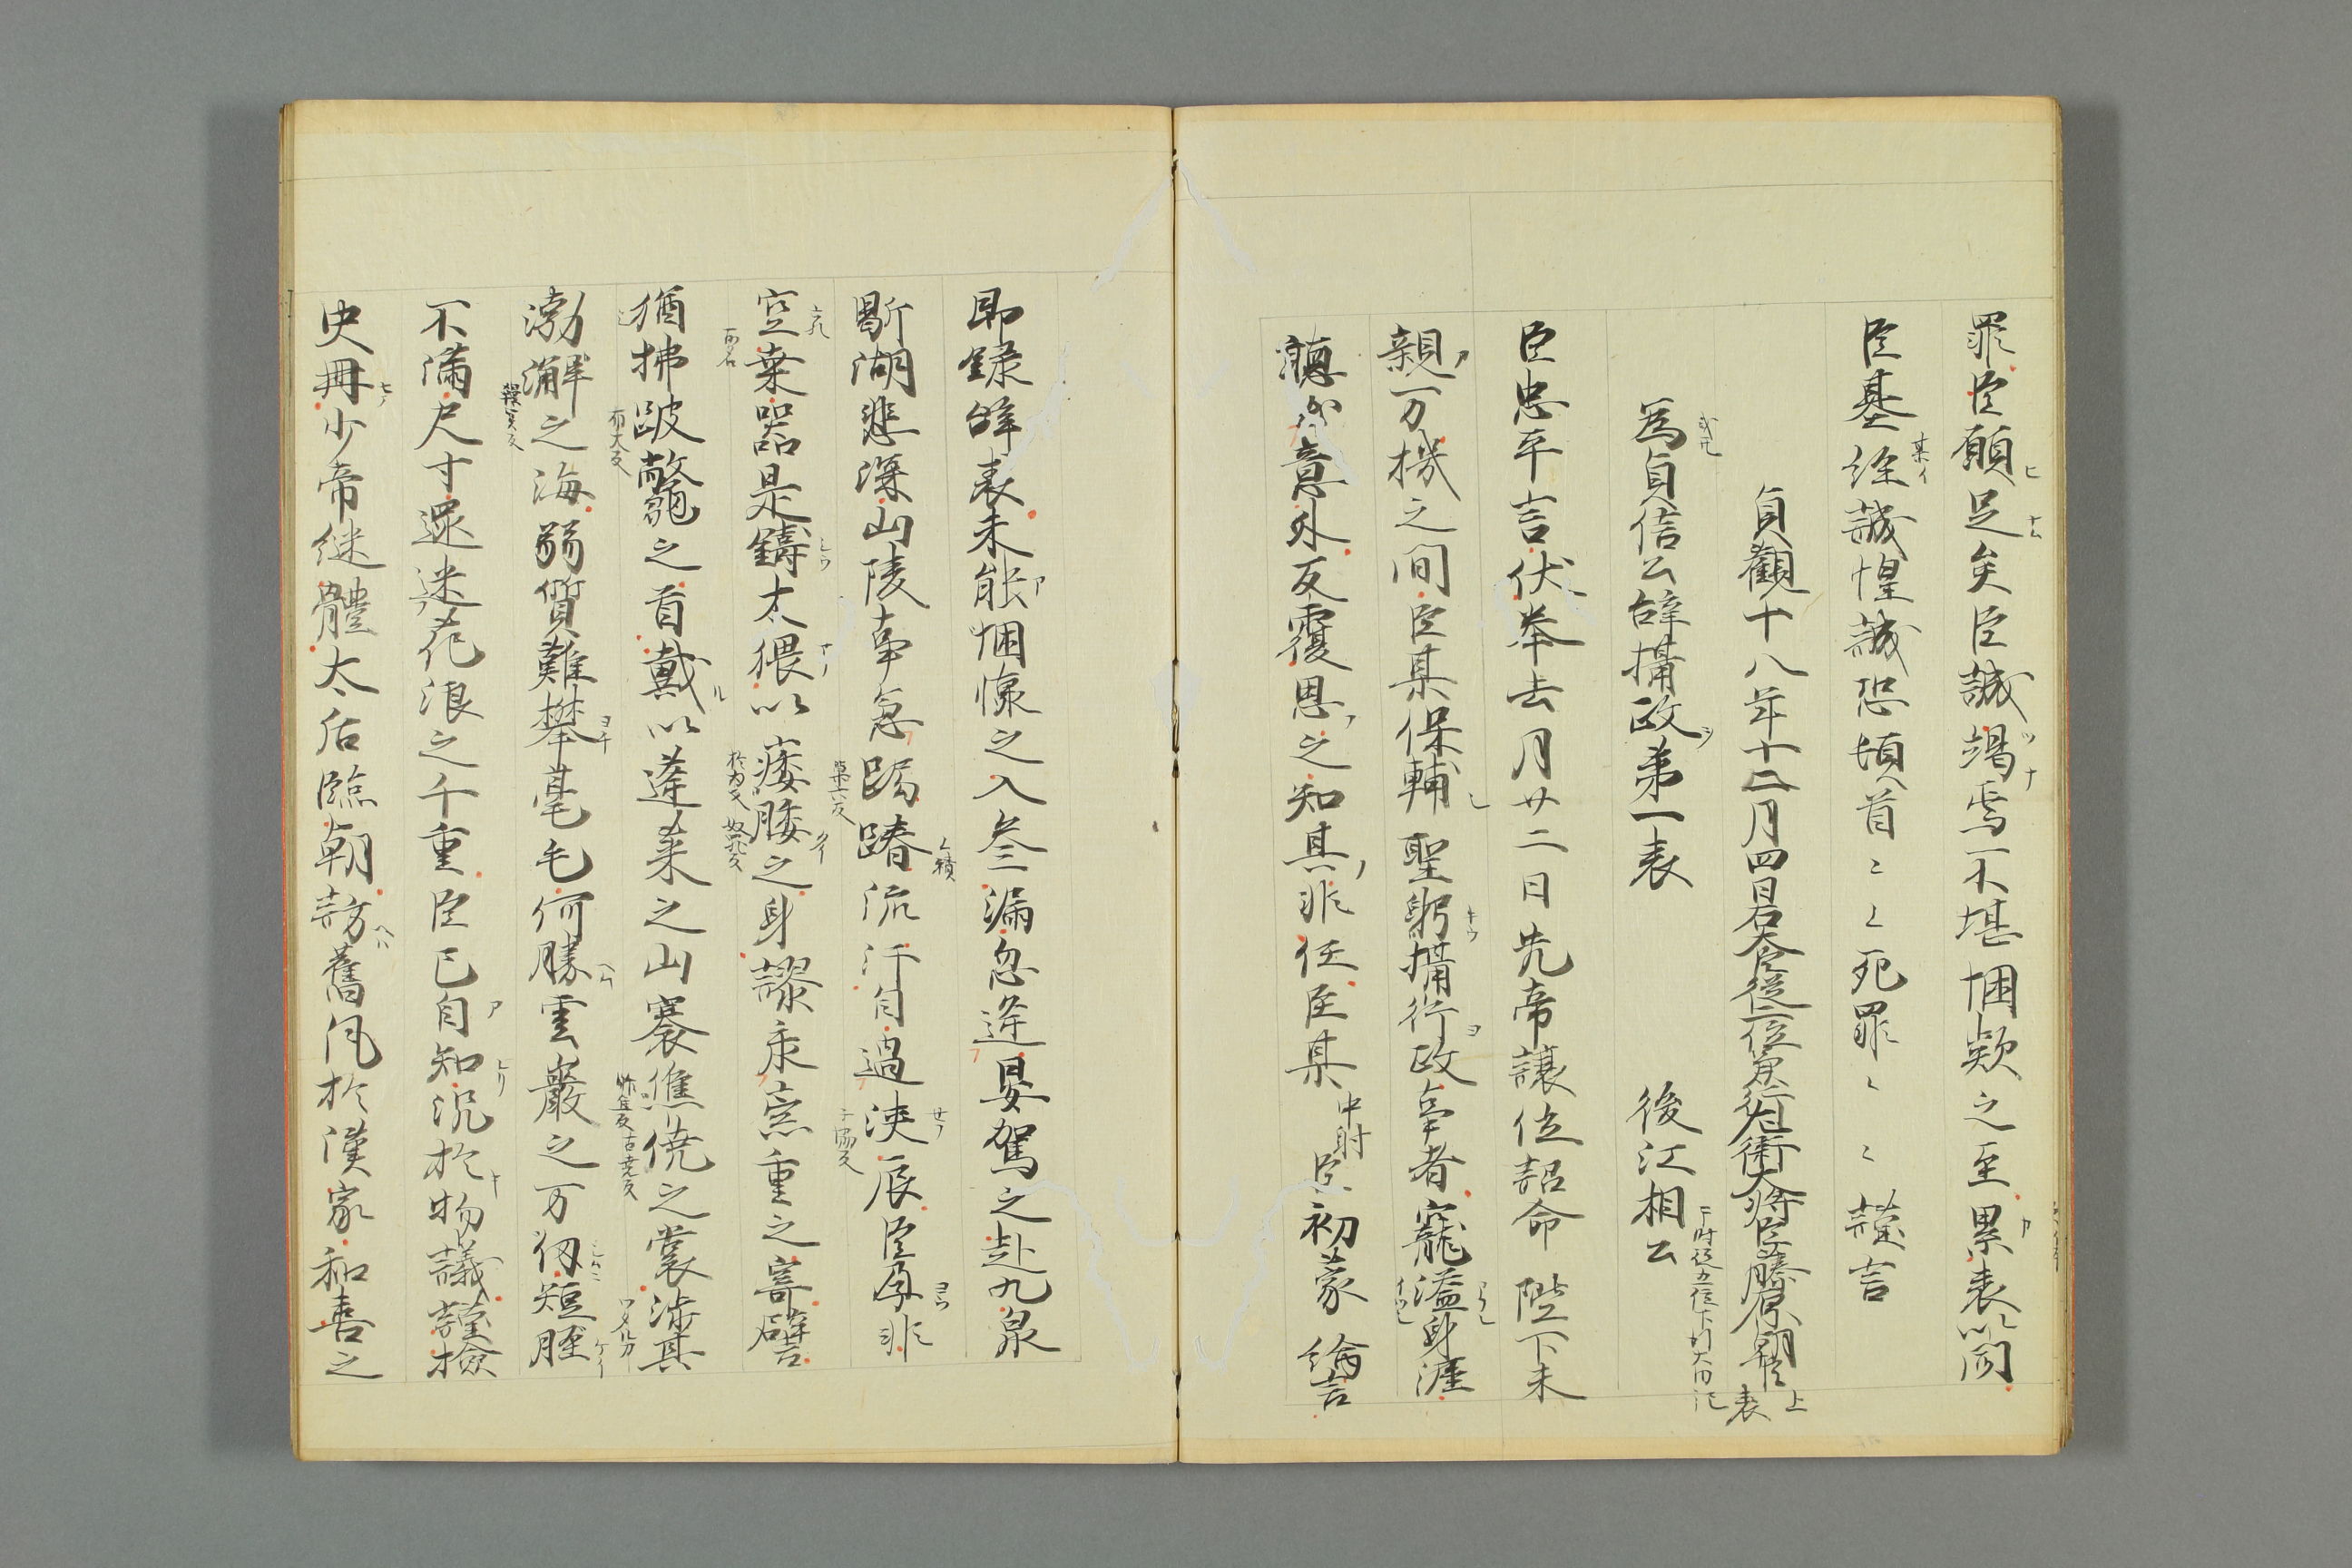 罪臣願足矣臣誠竭焉不堪悃款之至累表以聞
臣基経誠惶誠恐頓首〻〻死罪〻〻謹言
貞觀十八年十二月四日右大臣従二位兼行左近衛大将臣藤原朝臣上表
為貞信公辞攝政第一表 後江相公
臣忠平言伏奉去月廿二日先帝讓位詔命陛下未
親万機之間臣某保輔聖躬攝行政事者寵溢身涯
聽出意外反覆思之知其非任臣某中謝臣初蒙綸言
即録辞表未能悃懐之入叁漏忽逢晏駕之赴九泉
鼎湖悲深山陵事急跼蹐流汗自過浹辰臣身非
空桒器是鑄太猥以痿腇之身謬忝寡重之寄譬
猶拂跛鼈之首戴以蓬莱之山褰僬僥之裳渉其
渤澥之海弱質難攀毫毛何勝雲巖之万仞短脛
不満尺寸還迷花浪之千重臣已自知况於物議謹撿
史冊少帝継體太后臨朝訪舊風於漢家和熹之